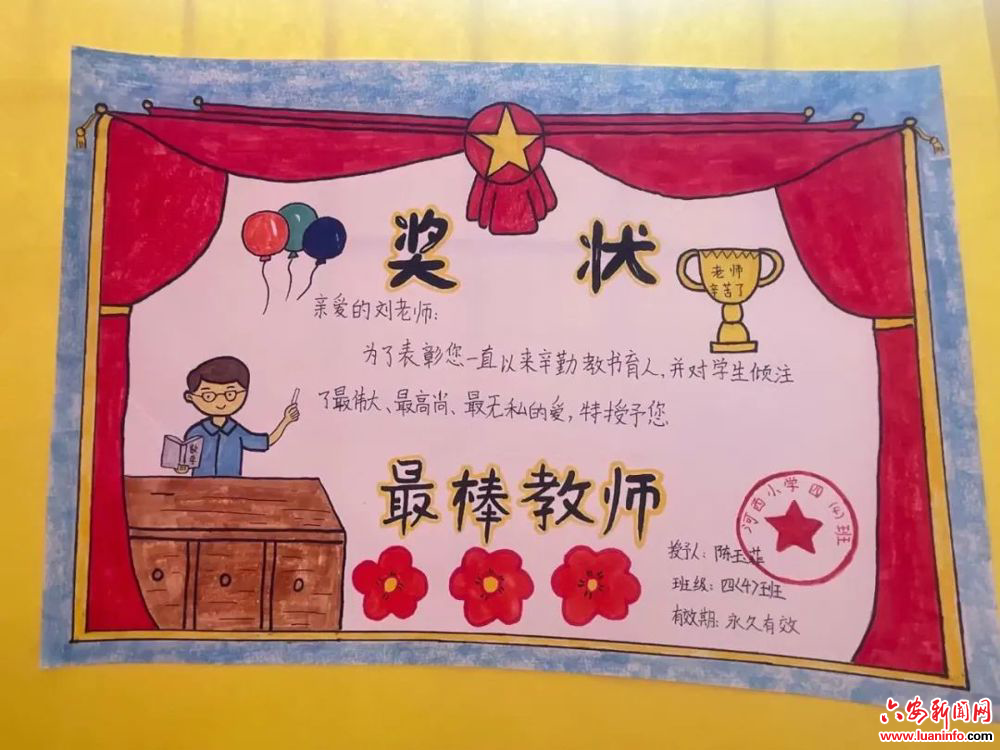 奖状
老师
辛苦了
亲爱的刘老师:
为了表彰您一直以来辛勤教书育人,并对学生倾注
了最伟大、最高尚、最无私的爱,特授予您
数学
最棒教师
河西小学四(4)班
授予人:陈玉菲
班级:四(4)班
有效期:永久有效
六安新闻网
www.luaninfo.com